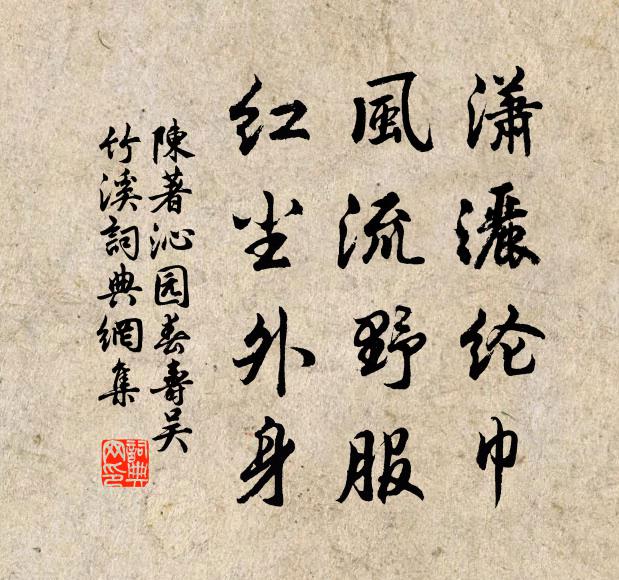 潇灑纶巾
風流野服
红尘外身
陳著沁园春壽吴
竹溪詞典網集
詞典网印